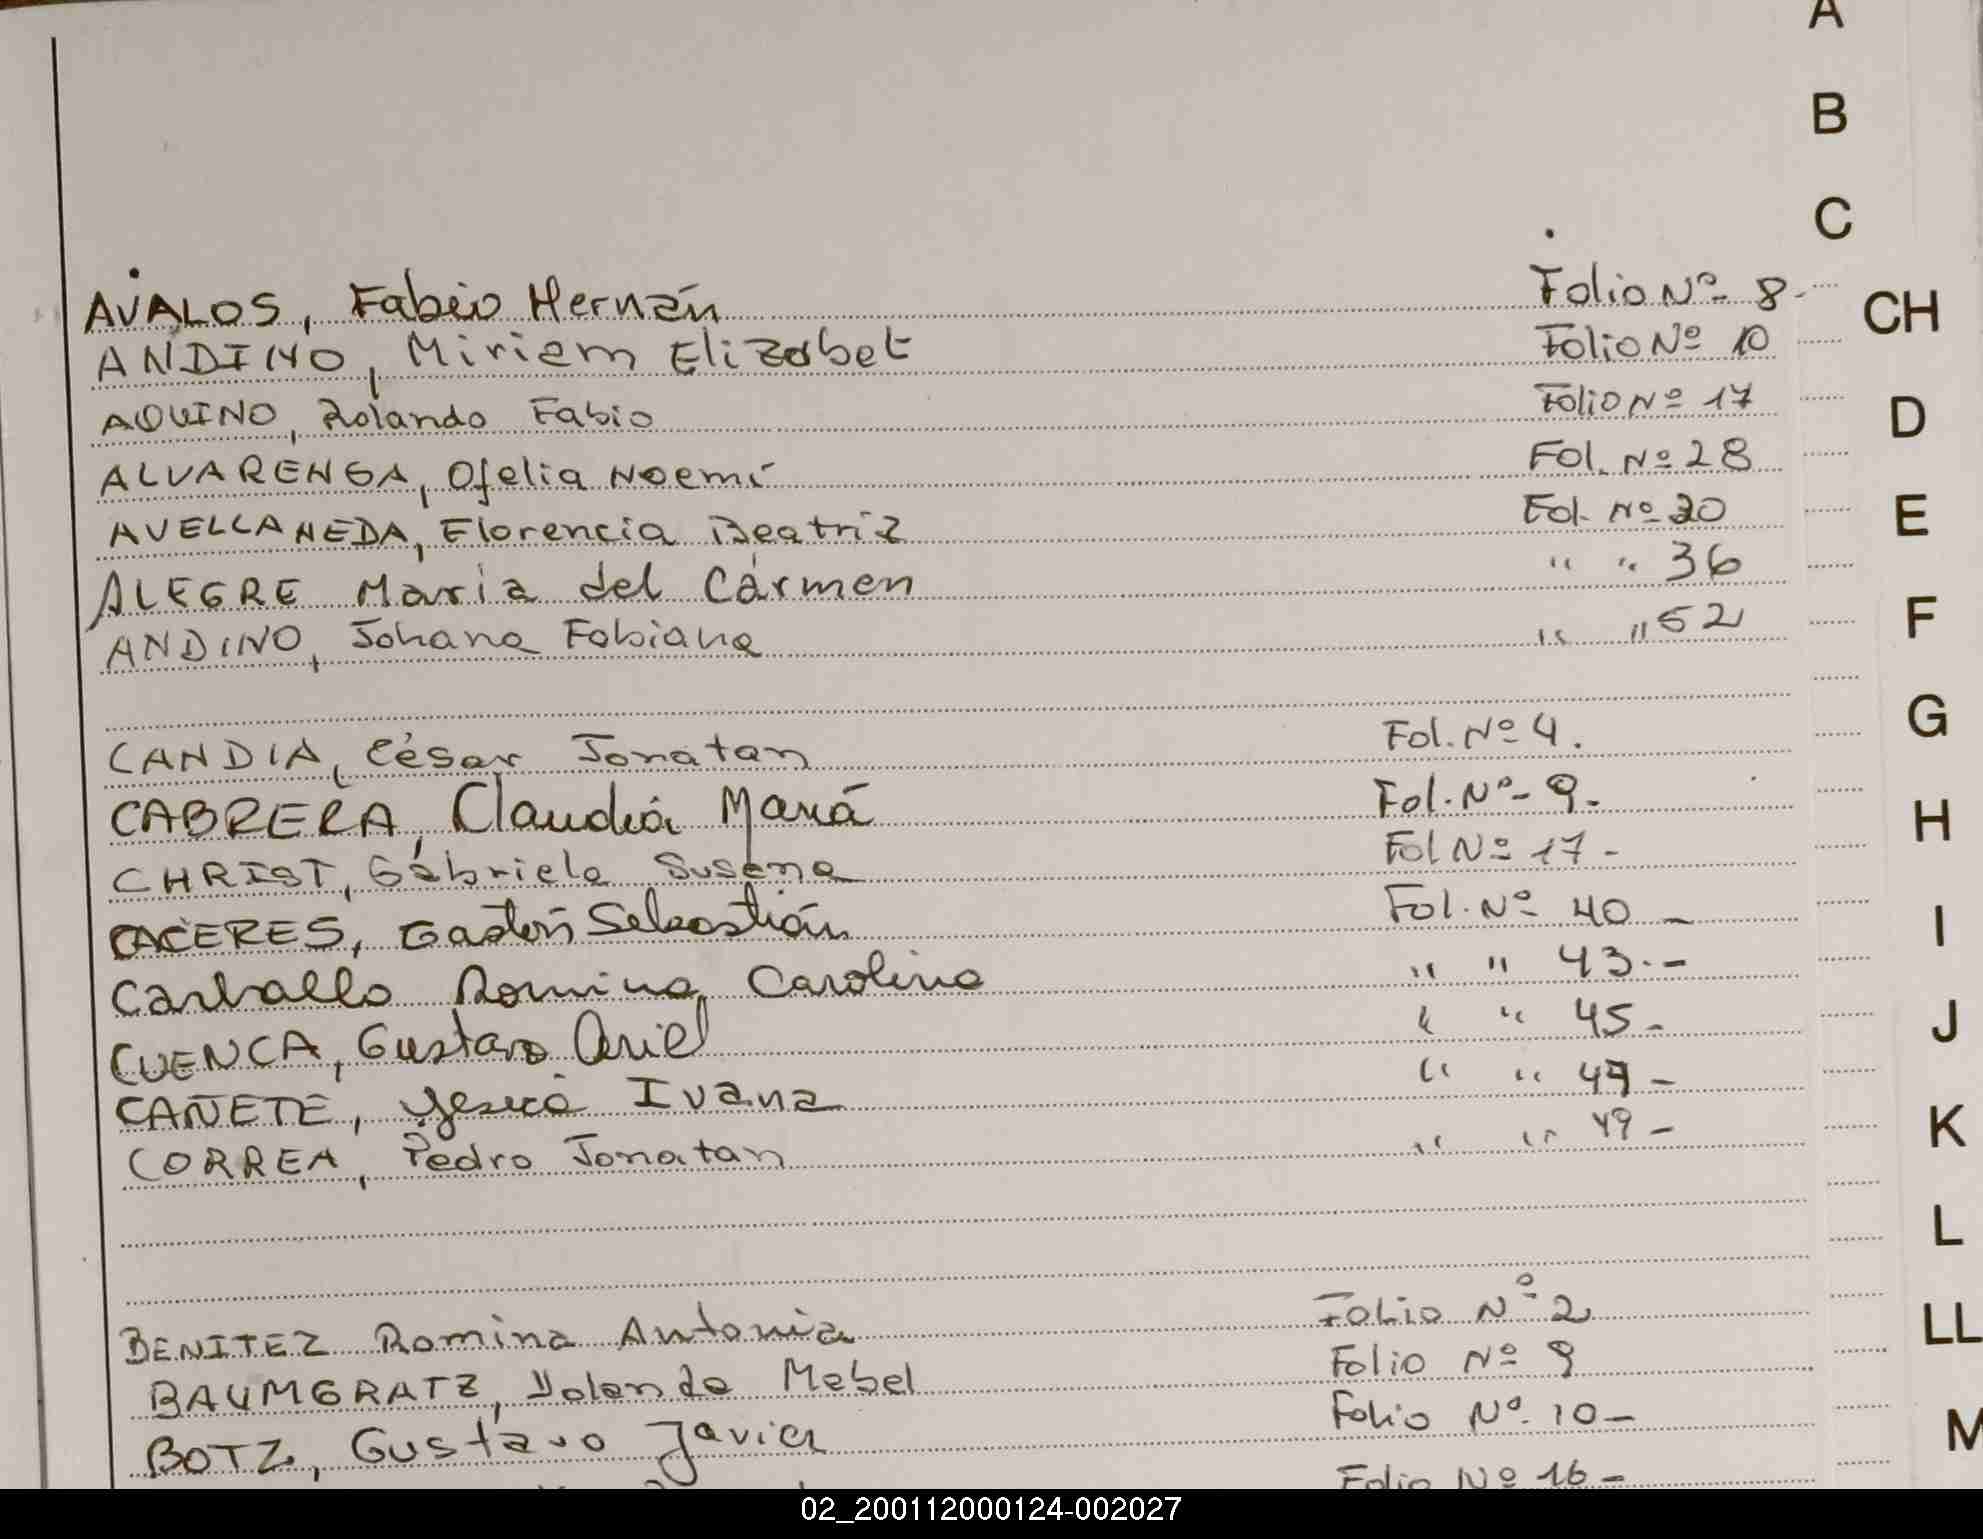 A
B
C
AVALOS, Fabio Hernán Folio Nº 8-
CH
ANDINO, Miriam Elizabet Folio Nº 10
AQUINO, Rolando Fabio Folio Nº 17
D
ALVARENGA, Ofelia Noemí Fol. Nº 28
AVELLANEDA, Florencia Beatriz Fol. Nº 20
E
ALEGRE Maria del Cármen " " 36
ANDINO, Johana Fabiana " " 52
F
G
CANDIA, César Jonatan Fol. Nº 4.
CABRERA, Claudia María Fol. Nº 9.
H
CHRIST, Gabriela Susana Fol Nº 17-
CACERES, Gastón Sebastián Fol. Nº 40-
I
Carballo Romina Carolina " " 43.-
CUENCA, Gustavo Ariel " " 45-
J
CAÑETE, Yesica Ivana " " 47-
CORREA, Pedro Jonatan " " 49-
K
L
BENITEZ Romina Antonia FOLIO Nº 2
LL
BAUMGRATZ, Yolanda Mabel Folio Nº 9
BOTZ, Gustavo Javier Folio Nº 10-
M
Folio Nº 16-
02_200112000124-002027